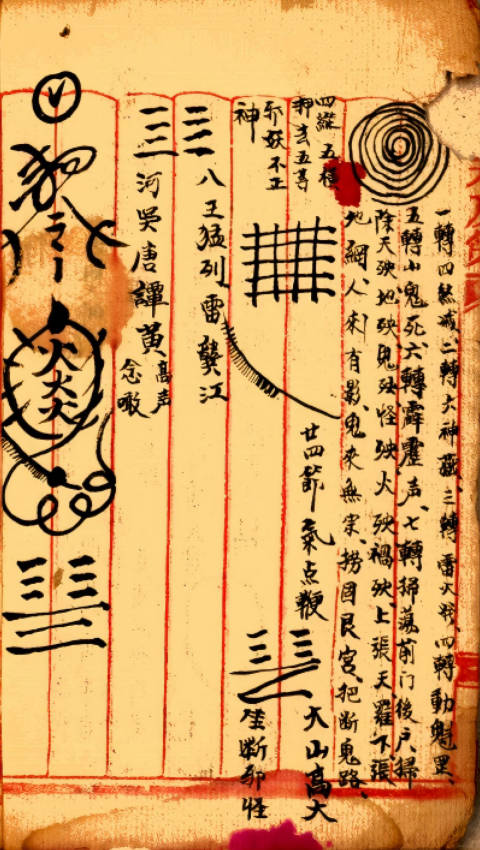 一轉四煞滅、二轉大神藏、三轉雷火発、四轉動魁罡、
五轉小鬼死、六轉霹靂声、七轉掃蕩前门後户、掃
除天殃地殃鬼殃怪殃火殃禍殃、上張天羅下張
地網、人來有影鬼來無宗、撈回艮宮、把断鬼路、
四縱五橫
押去五等
邪妖不正
神
廿四節氣点鞭
大山高大
坐断邪怪
八王猛列雷龔江
河吳唐譚黃
高声
念噉
火
火火